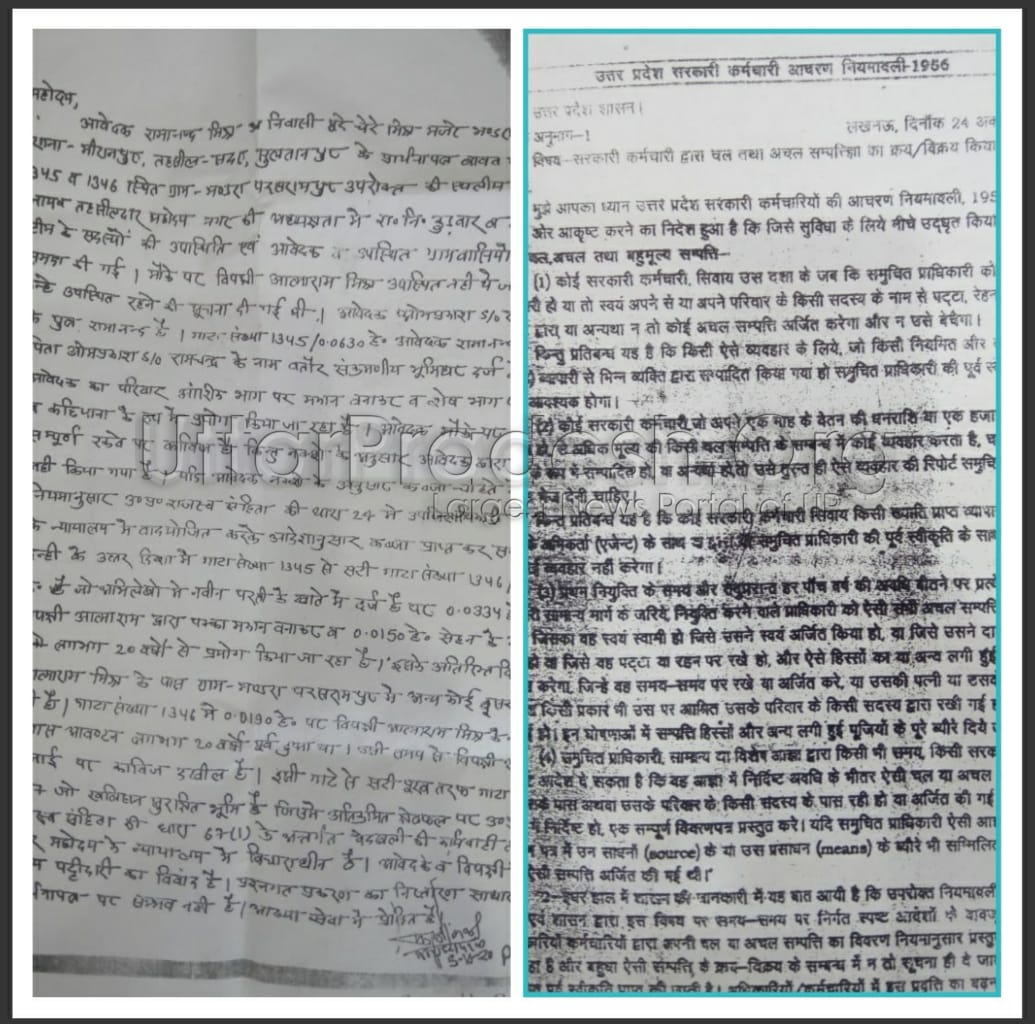 महोदय,
आवेदक रामानन्द मिश्र निवासी मिश्र मजरे
थाना- मीरानपुर, तहसील-सदर, सुलतानपुर के प्रार्थनापत्र बावत
1345 व 1346 स्थित ग्राम- परसरामपुर उपरोक्त की स्थलीय
नायब तहसीलदार महोदय नगर की अध्यक्षता में रा० नि०
टीम के सदस्यों की उपस्थिति एवं आवेदक व उपस्थित ग्रामवासियों
समक्ष की गई। मौके पर विपक्षी आत्माराम मिश्र उपस्थित नहीं थे
उपस्थित रहने की सूचना दी गई थी। आवेदक ओमप्रकाश S/O
के पुत्र रामानन्द है। गाटा संख्या 1345/0.0630 हे० आवेदक
पिता ओमप्रकाश S/O रामचन्द्र के नाम बतौर संक्रमणीय भूमिधर दर्ज
आवेदक का परिवार आंशिक भाग पर मकान बनाकर व शेष भाग
के रूप में प्रयोग किया जा रहा है। आवेदक मौके पर
सम्पूर्ण रकबे पर काबिज है किन्तु नक्शे के अनुसार आवेदक द्वारा
नहीं किया गया है। यदि आवेदक नक्शे के अनुसार कब्जा चाहते
नियमानुसार उ०प्र० राजस्व संहिता की धारा 24 में उपजिलाधिकारी
के न्यायालय में वाद योजित करके आदेशानुसार कब्जा प्राप्त कर
के उत्तर दिशा में गाटा संख्या 1345 से सटी गाटा संख्या 1346
है जो अभिलेखों में नवीन परती के खाते में दर्ज है पर 0.0334
आत्माराम द्वारा पक्का मकान बनाकर व 0.0150 हे० सेहन के
लगभग 20 वर्षों से प्रयोग किया जा रहा है। इसके अतिरिक्त
आत्माराम मिश्र के पास ग्राम- परसरामपुर में अन्य कोई
है। गाटा संख्या 1346 में 0.0190 हे० पर विपक्षी आत्माराम मिश्र
आवंटन लगभग 20 वर्षों पूर्व हुआ था। उसी समय से विपक्षी
पर काबिज दखील है। इसी गाटे से सटी पूरब तरफ गाटा
7 जो खलिहान सुरक्षित भूमि है जिसमें अतिक्रमित क्षेत्रफल पर उ०प्र०
संहिता की धारा 67(1) के अन्तर्गत बेदखली की कार्यवाही
महोदय के न्यायालय में विचाराधीन है। आवेदक व विपक्षी
पट्टीदारी का विवाद है। प्रश्नगत प्रकरण का निस्तारण
पर सम्भव नहीं है। आख्या सेवा में प्रेषित है।
उत्तर प्रदेश सरकारी कर्मचारी आचरण नियमावली-1956
उत्तर प्रदेश शासन।
लखनऊ, दिनाँक 24
अनुभाग-1
विषय-सरकारी कर्मचारी द्वारा चल तथा अचल सम्पत्ति का क्रय/विक्रय किया
मुझे आपका ध्यान उत्तर प्रदेश सरकारी कर्मचारियों की आचरण नियमावली, 195
ओर आकृष्ट करने का निदेश हुआ है कि जिसे सुविधा के लिये नीचे उद्धृत किया
अचल तथा बहुमूल्य सम्पत्ति-
(1) कोई सरकारी कर्मचारी, सिवाय उस दशा के जब कि समुचित प्राधिकारी को
हो या तो स्वयं अपने से या अपने परिवार के किसी सदस्य के नाम से पट्टा, रेहन
द्वारा या अन्यथा न तो कोई अचल सम्पत्ति अर्जित करेगा और न उसे बेचेगा।
किन्तु प्रतिबन्ध यह है कि किसी ऐसे व्यवहार के लिये, जो किसी नियमित और
व्यापारी से भिन्न व्यक्ति द्वारा सम्पादित किया गया हो समुचित प्राधिकारी की पूर्व
आवश्यक होगा।
(2) कोई सरकारी कर्मचारी जो अपने एक माह के वेतन की धनराशि या एक हजा
से अधिक मूल्य की किसी चल सम्पत्ति के सम्बन्ध में कोई व्यवहार करता है,
सम्पादित हो, या अन्यथा हो तो उसे तुरन्त ही ऐसे व्यवहार की रिपोर्ट समुचि
भेज देनी चाहिए।
किन्तु प्रतिबन्ध यह है कि कोई सरकारी कर्मचारी सिवाय किसी ख्याति प्राप्त व्यापा
अभिकर्ता (एजेन्ट) के साथ या समुचित प्राधिकारी की पूर्व स्वीकृति के
व्यवहार नहीं करेगा।
(3) प्रथम नियुक्ति के समय और तदुपरान्त हर पाँच वर्ष की अवधि बीतने पर
सामान्य मार्ग के जरिये, नियुक्ति करने वाले प्राधिकारी को ऐसी सभी अचल सम्पत्ति
जिसका वह स्वयं स्वामी हो जिसे उसने स्वयं अर्जित किया हो, या जिसे उसने दा
या जिसे वह पट्टा या रहन पर रखे हो, और ऐसे हिस्सों का या अन्य लगी हुई
करेगा, जिन्हें वह समय-समय पर रखे या अर्जित करे, या उसकी पत्नी या उसक
किसी प्रकार भी उस पर आश्रित उसके परिवार के किसी सदस्य द्वारा रखी गई
हो। इन घोषणाओं में सम्पत्ति हिस्सों और अन्य लगी हुई पूंजियों के पूरे ब्यौरे दिये
(4) समुचित प्राधिकारी, सामान्य या विशेष आज्ञा द्वारा किसी भी समय, किसी सरक
आदेश दे सकता है कि वह आज्ञा में निर्दिष्ट अवधि के भीतर ऐसी चल या अचल
पास अथवा उसके परिवार के किसी सदस्य के पास रही हो या अर्जित की गई
निर्दिष्ट हो, एक सम्पूर्ण विवरणपत्र प्रस्तुत करे। यदि समुचित प्राधिकारी ऐसी आ
पत्र में उन साधनों (source) के या उस प्रसाधन (means) के ब्यौरे भी सम्मिलि
ऐसी सम्पत्ति अर्जित की गई थी।"
2-इधर हाल में शासन की जानकारी में यह बात आयी है कि उपरोक्त नियमावली
एवं शासन द्वारा इस विषय पर समय-समय पर निर्गत स्पष्ट आदेशों के बावज
कर्मचारियों द्वारा अपनी चल या अचल सम्पत्ति का विवरण नियमानुसार प्रस्तु
है और बहुधा ऐसी सम्पत्ति के क्रय-विक्रय के सम्बन्ध में न तो सूचना ही दे जा
पूर्व स्वीकृति प्राप्त की जाती है। अधिकारियों/कर्मचारियों में इस प्रवृति का बढ़न
UttarPradesh.Org
Largest News Portal of UP